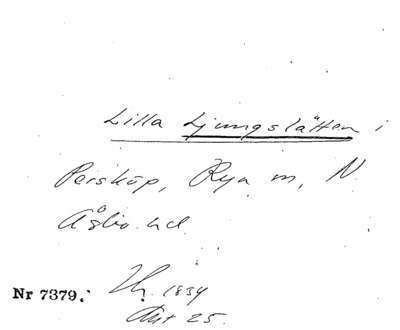 Lilla Ljungslätten i
Persköp, Rya sn, N.
Åsbo hd.
Nr 7379. Th. 1834
Akt 25.